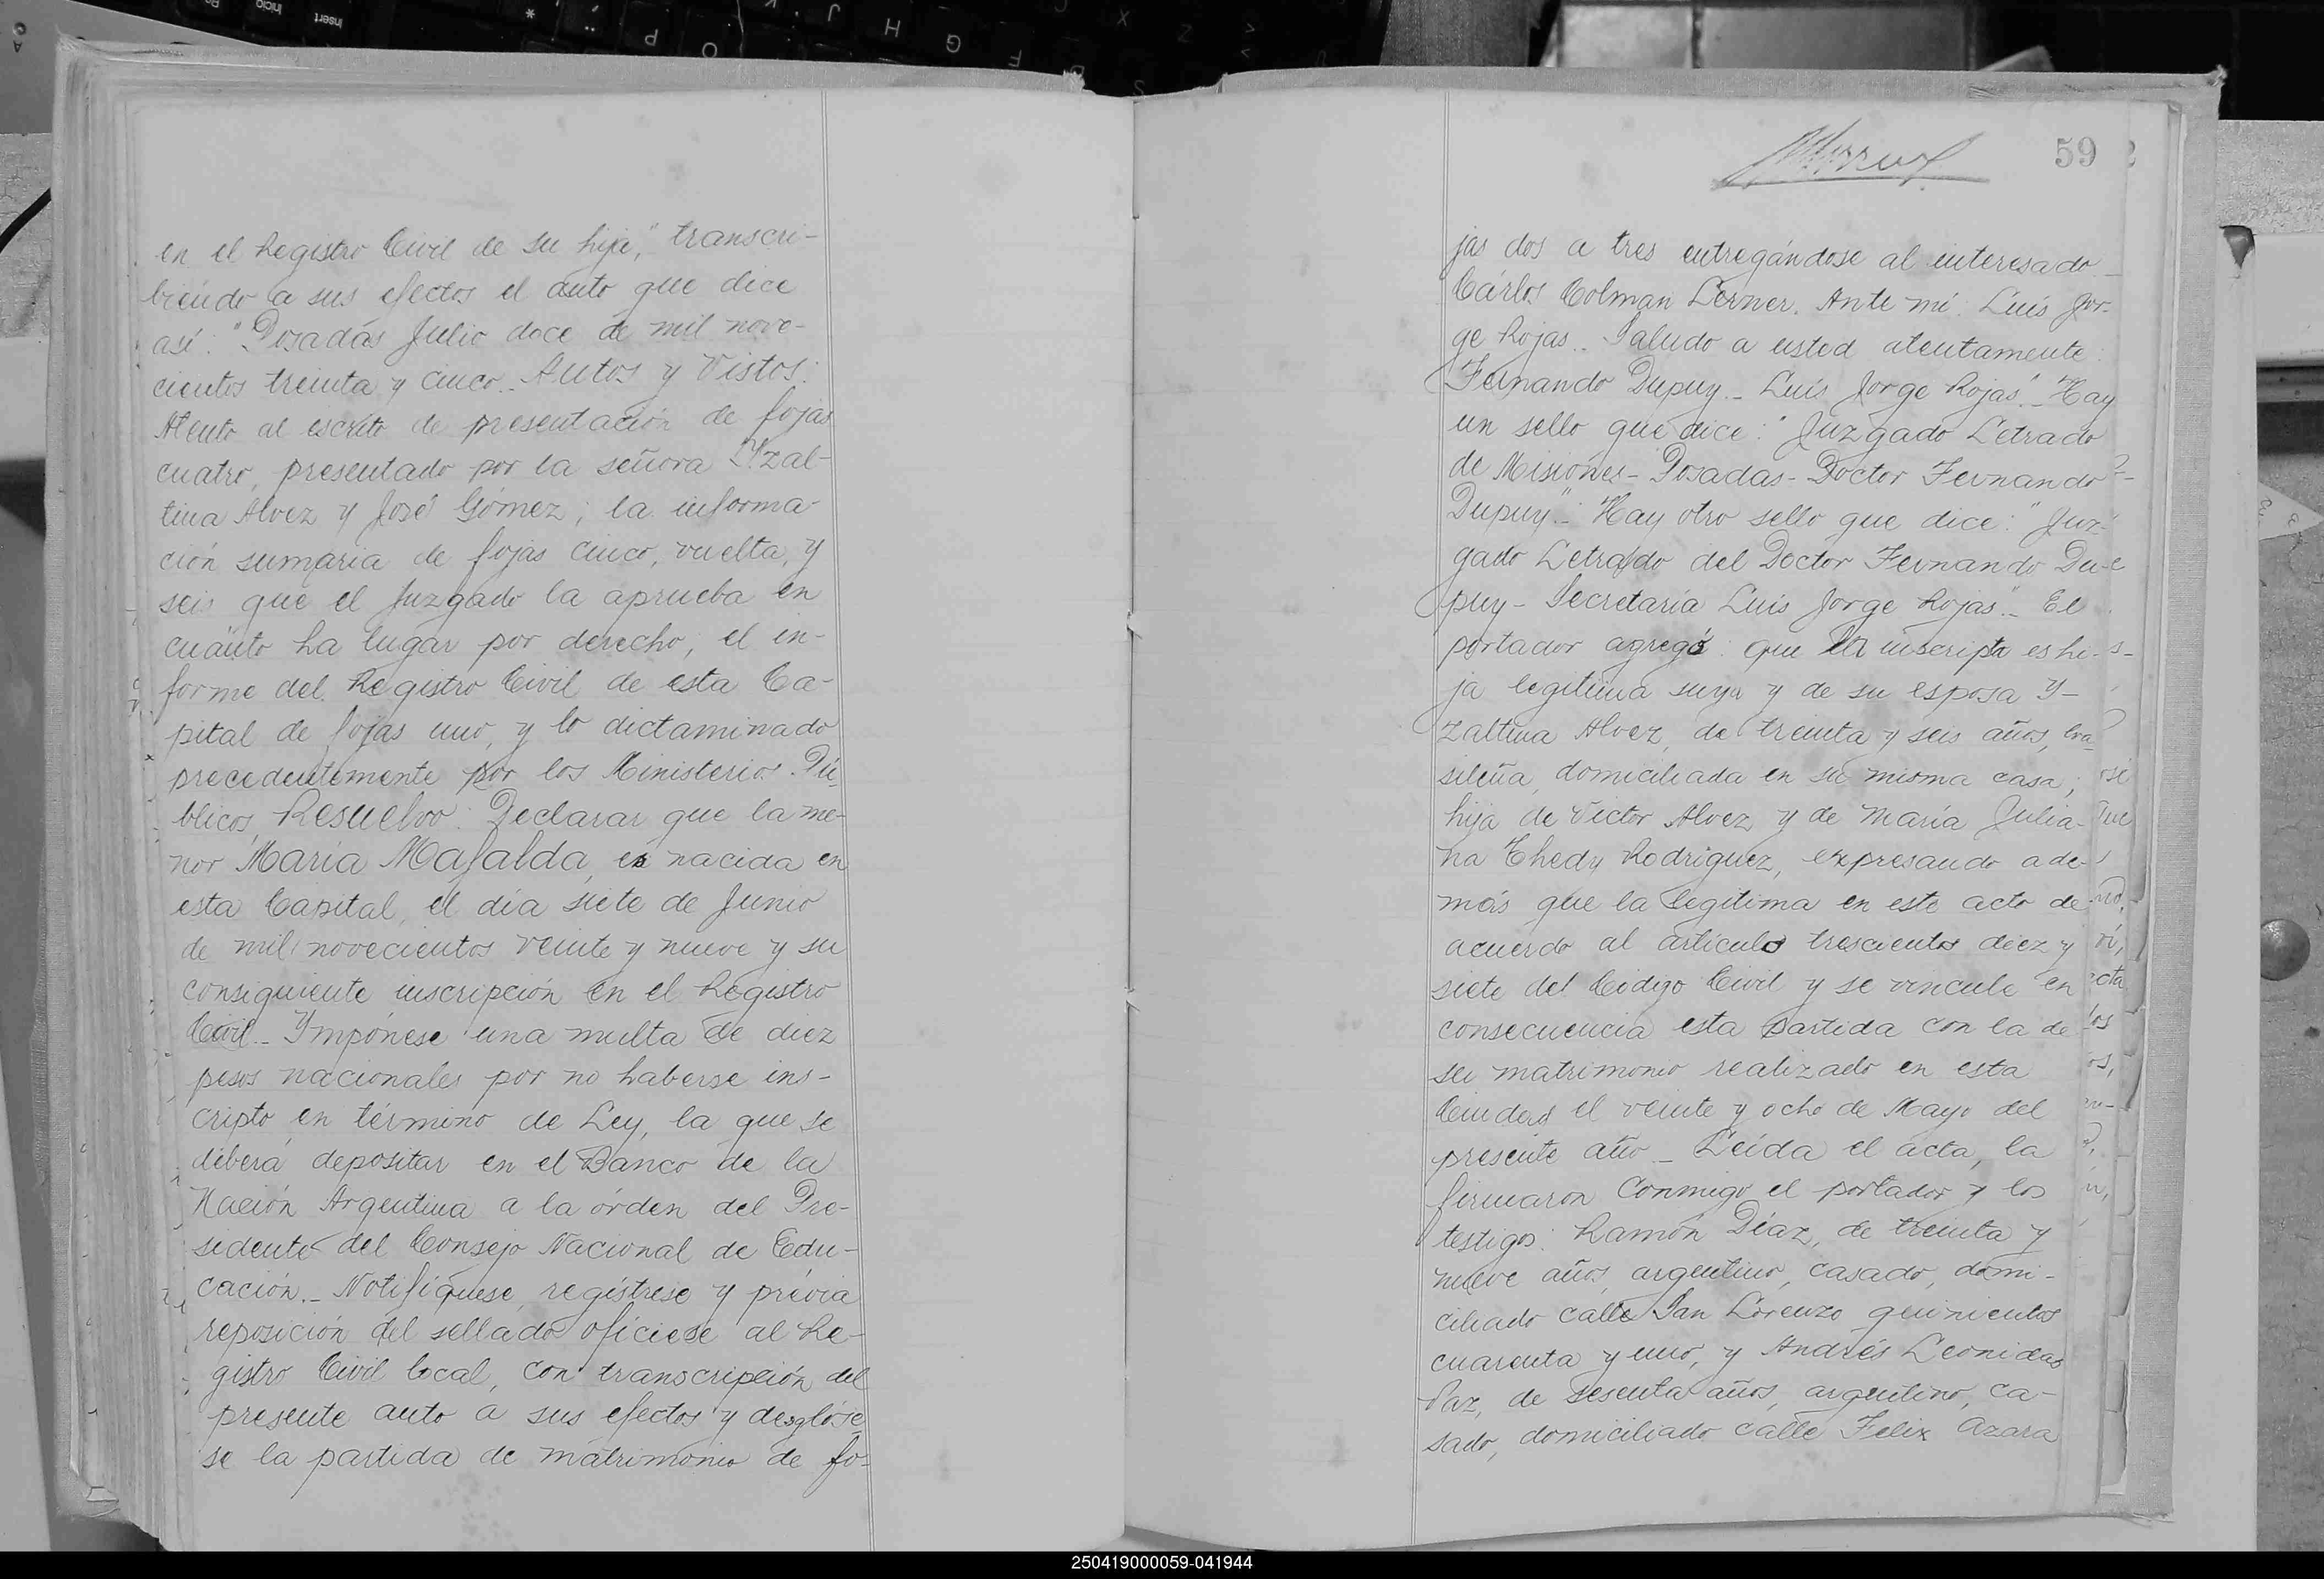 en el Registro Civil de su hija," transcri-
biendo a sus efectos el auto que dice
así: "Posadas Julio doce de mil nove-
cientos treinta y cinco.- Autos y Vistos:
Atento al escrito de presentación de fojas
cuatro, presentado por la señora Yzal-
tina Alvez y José Gómez; la informa-
ción sumaria de fojas cinco, vuelta, y
seis que el Juzgado la aprueba en
cuánto ha lugar por derecho; el in-
forme del Registro Civil de esta Ca-
pital de fojas uno, y lo dictaminado
precedentemente por los Ministerios Pú-
blicos, Resuelvo: Declarar que la me-
nor María Mafalda, es nacida en
esta Capital, el día siete de Junio
de mil novecientos veinte y nueve y su
consiguiente inscripción en el Registro
Civil.- Ympónese una multa de diez
pesos nacionales por no haberse ins-
cripto en término de Ley, la que se
deberá depositar en el Banco de la
Nación Argentina a la órden del Pre-
sidente del Consejo Nacional de Edu-
cación.- Notifíquese, regístrese y prévia
reposición del sellado ofíciese al Re-
gistro Civil local, con transcripción del
presente auto a sus efectos y desglóse
se la partida de matrimonio de fo-
59
jas dos a tres entregándose al interesado
Cárlos Colman Lerner. Ante mí: Luis Jor-
ge Rojas.- Saludo a usted atentamente:
Fernando Dupuy.- Luis Jorge Rojas".- Hay
un sello que dice: "Juzgado Letrado
de Misiones- Posadas- Doctor Fernando
Dupuy".- Hay otro sello que dice: "Juz-
gado Letrado del Doctor Fernando Du-
puy- Secretaría Luis Jorge Rojas".- El
portador agregó: que la inscripta es hi-
ja legitima suya y de su esposa Y-
zaltina Alvez, de treinta y seis años, bra-
sileña, domiciliada en su misma casa;
hija de Victor Alvez y de María Julia-
na Chedy Rodriguez, expresando ade-
más que la legitima en este acto de
acuerdo al artículo trescientos diez y
siete del Código Civil y se vincule en
consecuencia esta partida con la de
su matrimonio realizado en esta
Ciudad el veinte y ocho de Mayo del
presente año.- Leída el acta, la
firmaron conmigo el portador y los
testigos: Ramón Díaz, de treinta y
nueve años, argentino, casado, domi-
ciliado calle San Lorenzo quinientos
cuarenta y uno, y Andrés Leonidas
Paz, de sesenta años, argentino, ca-
sado, domiciliado calle Felix Azara
250419000059-041944